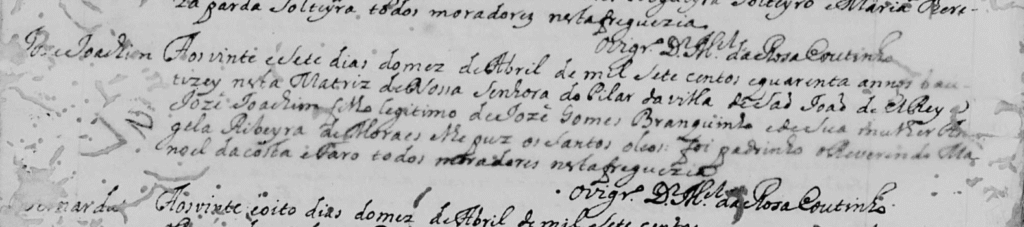 za parda Solteyra todos moradores nesta freguezia
O vigr.º D.r M.el da Rosa Coutinho
Joze Joachim Aos vinte e sete dias do mez de Abril de mil sete centos e quarenta annos bau-
tizey nesta Matriz de Nossa Senhora do Pilar da villa de Saõ Joaõ de El Rey a
Joze Joachim f.º legitimo de Joze Gomes Branquinho e de sua mulher An-
gela Ribeyra de Moraes e lhe puz os Santos oleos: foi padrinho o Reverendo Ma-
noel da costa e Faro todos moradores nesta freguezia
O vigr.º D.r M.el da Rosa Coutinho
Bernardo Aos vinte e oito dias do mez de Abril de mil e sete centos